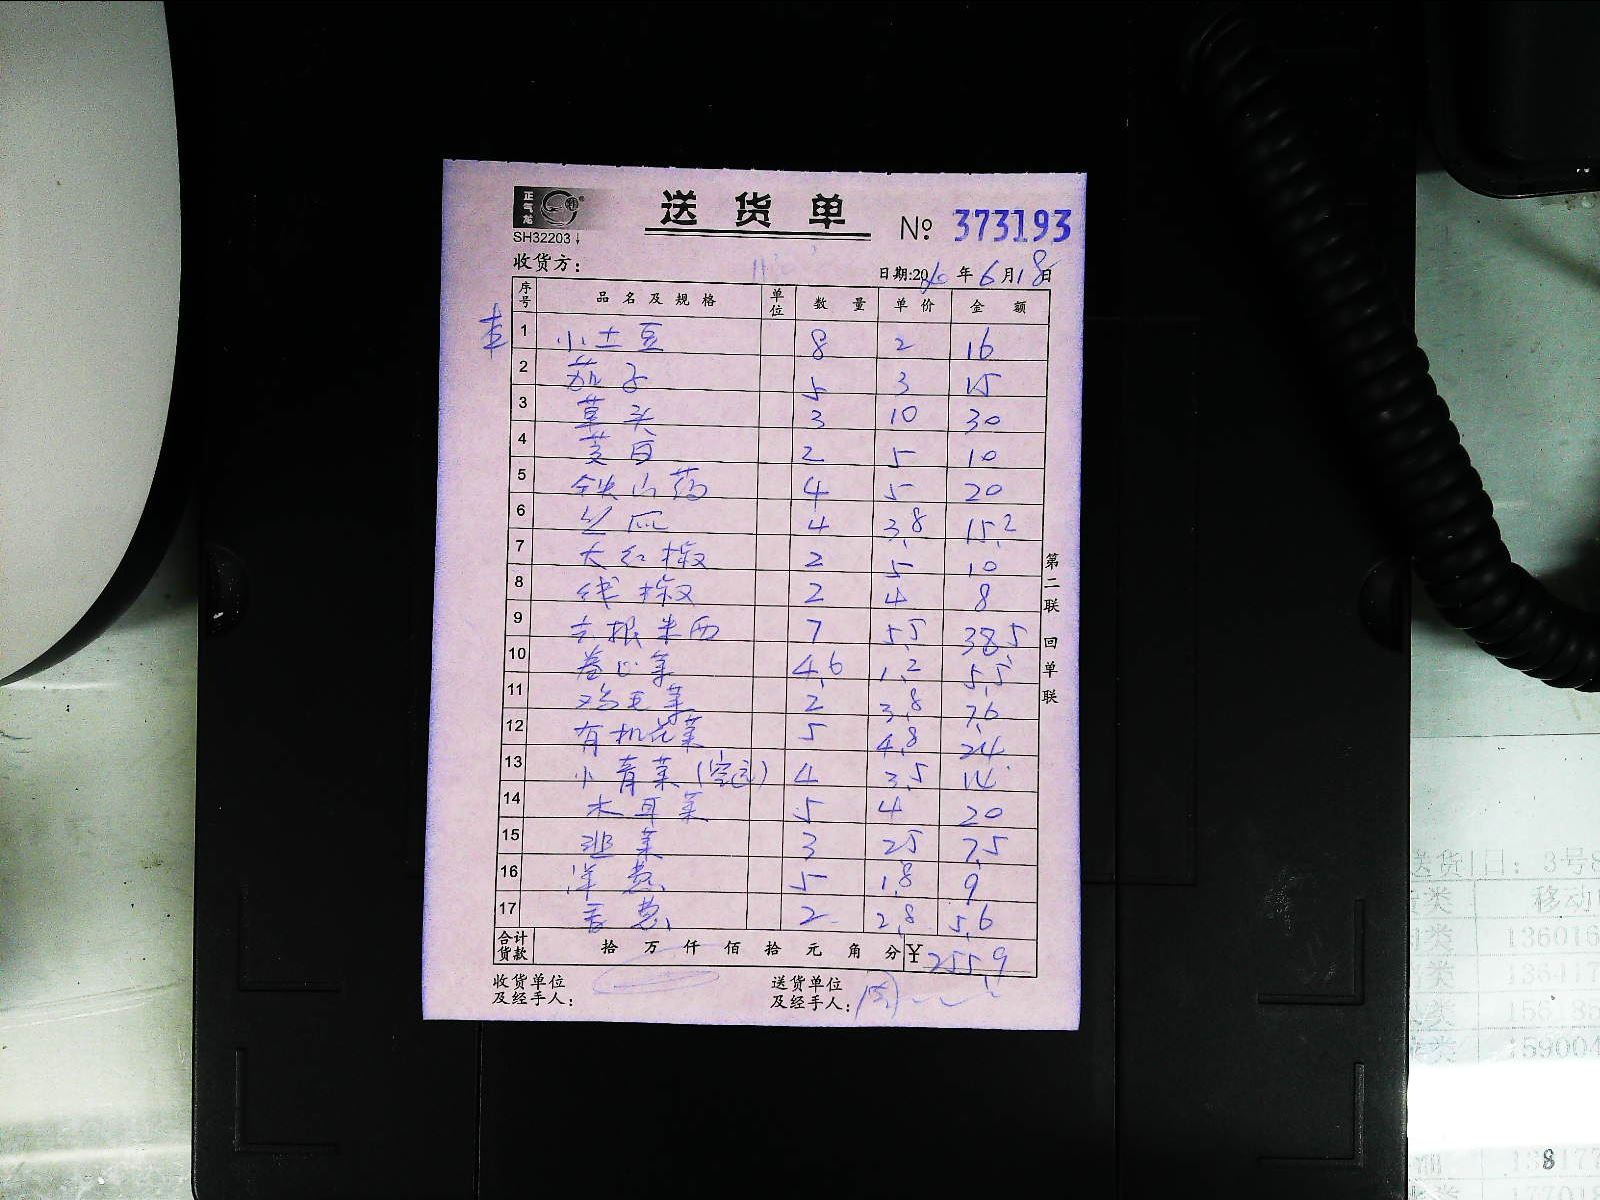 正气龙
SH32203
送 货 单
№ 373193
收货方:
日期:20 年 6 月 18 日
序号 品名及规格 单位 数量 单价 金额
1 小土豆 8 2 16
2 茄子 5 3 15
3 草头 3 10 30
4 茭白 2 5 10
5 铁山药 4 5 20
6 丝瓜 4 3.8 15.2
7 大红椒 2 5 10
8 线椒 2 4 8
9 7 5.5 38.5
10 卷心菜 4.6 1.2 5.5
11 鸡毛菜 2 3.8 7.6
12 有机花菜 5 4.8 24
13 小青菜 4 3.5 14
14 木耳菜 5 4 20
15 韭菜 3 25 7.5
16 洋葱 5 1.8 9
17 香葱 2 2.8 5.6
合计货款 拾 万 仟 佰 拾 元 角 分 ¥ 255.9
收货单位及经手人:
送货单位及经手人:
第二联 回单联
送货 日: 3号8
类 移动
类 136016
类
类
类 159004
8